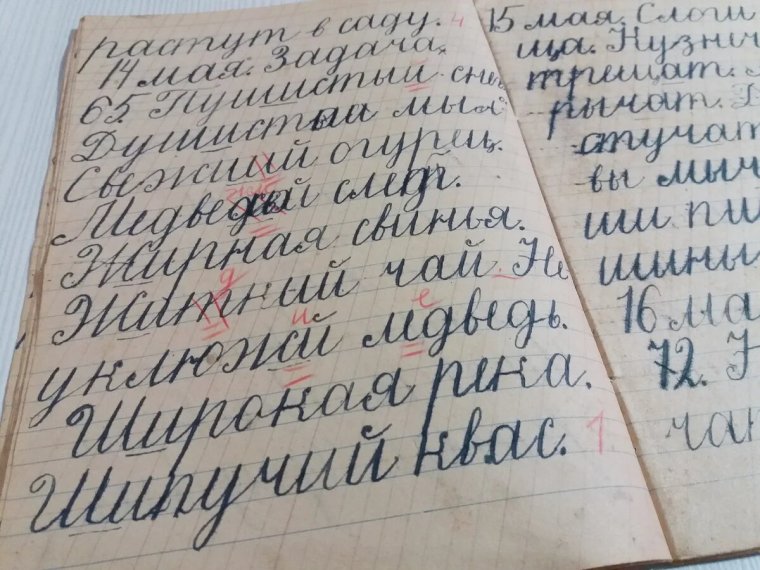 растут в саду. 4
14 мая. Задача.
65. Пушистый сне
Душистая мыл
Свежий огурец.
Медвежий следъ.
Жирная свинья.
д
Житкий чай. Не
и е
уклюжай мдведь.
Широкая река.
Шипучий квас. 1
15 мая. Слоги
ща. Кузнеч
трещат.
рычат.
стучат
вы мыч
ши пи
шины
16 ма
72.
ча